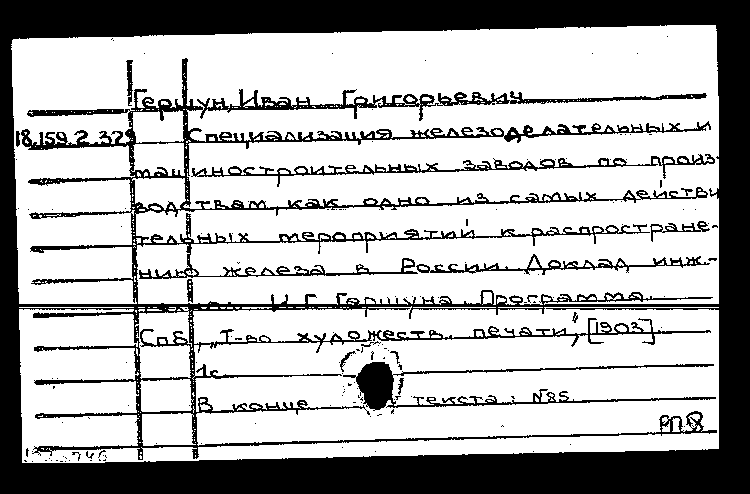 Гершун, Иван Григорьевич
18.159.2.329 Специализация железоделательных и
машиностроительных заводов по произ-
водствам, как одно из самых действи
тельных мероприятий к распростране-
нию железа в России. Доклад инж.-
И.Г. Гершуна. Программа.
Спб., „Т-во художеств. печати", [1903].
1с.
В конце текста: №85
РП8